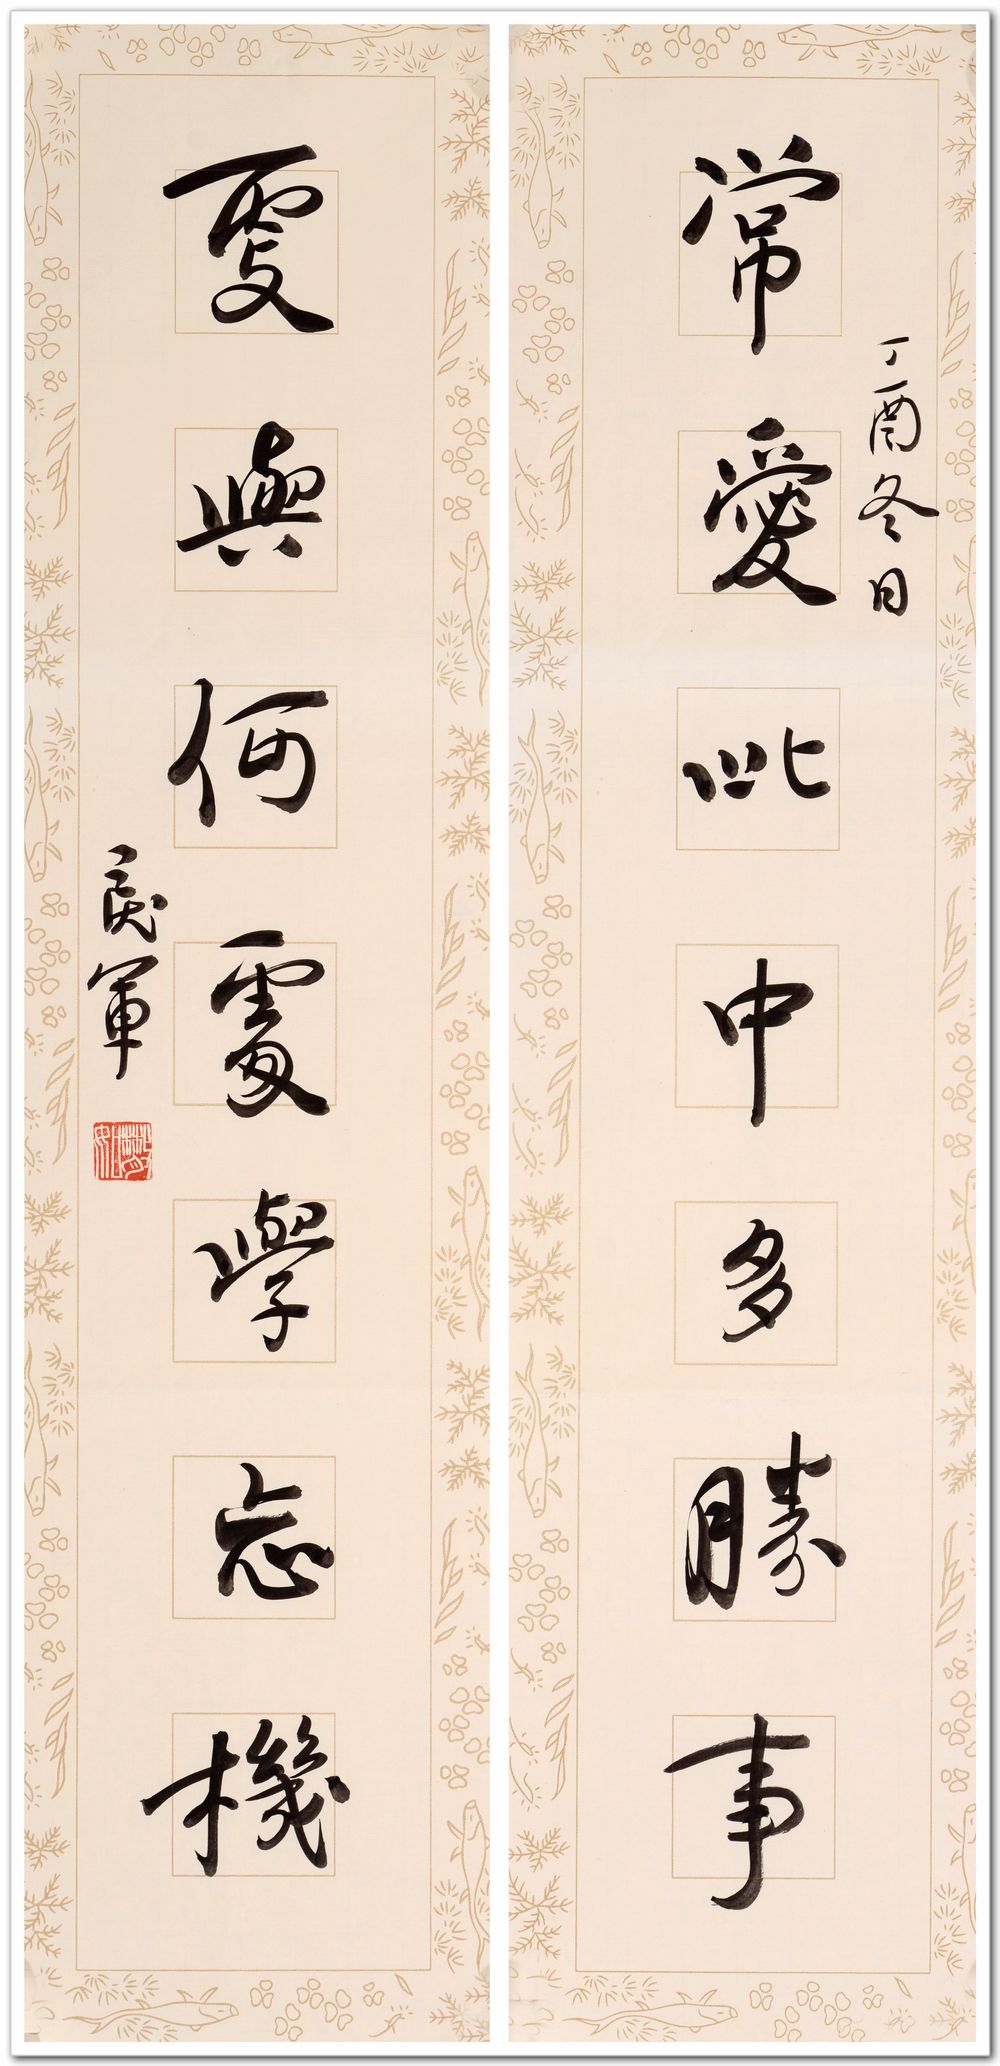 丁酉冬日
常愛此中多勝事
更與何處學忘機
軍